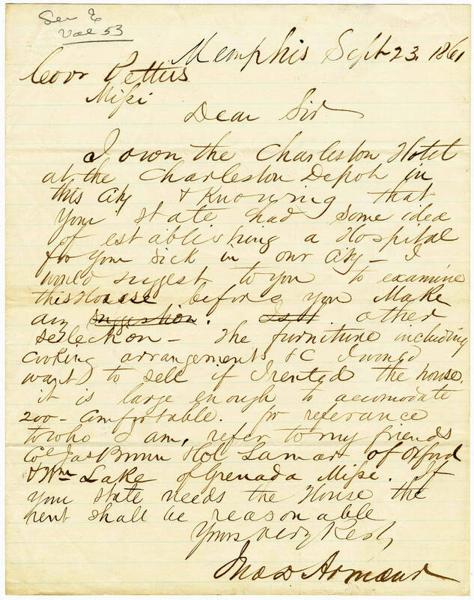 Ser E
Vol 53
Memphis Sept 23, 1861
Govr Pettus
Missi
Dear Sir
I own the Charleston Hotel
at the Charleston Depot in
this City & Knowing that
your state had some idea
of establishing a Hospital
for your sick in our City – I
would sugest to you to examine
this House before you Make
any other
selection – The furniture including
Cooking arrangements &C I would
want to sell if I rented the house.
it is large enough to accomodate
200 – Comfortable. for referance
to who I am, refer to my friends
Col Jas Brown & Col Lamar of Oxford
& Wm Lake of Grenada Missi. If
your state needs the House the
rent shall be reasonable
Yours very Resty
Jno D Armour